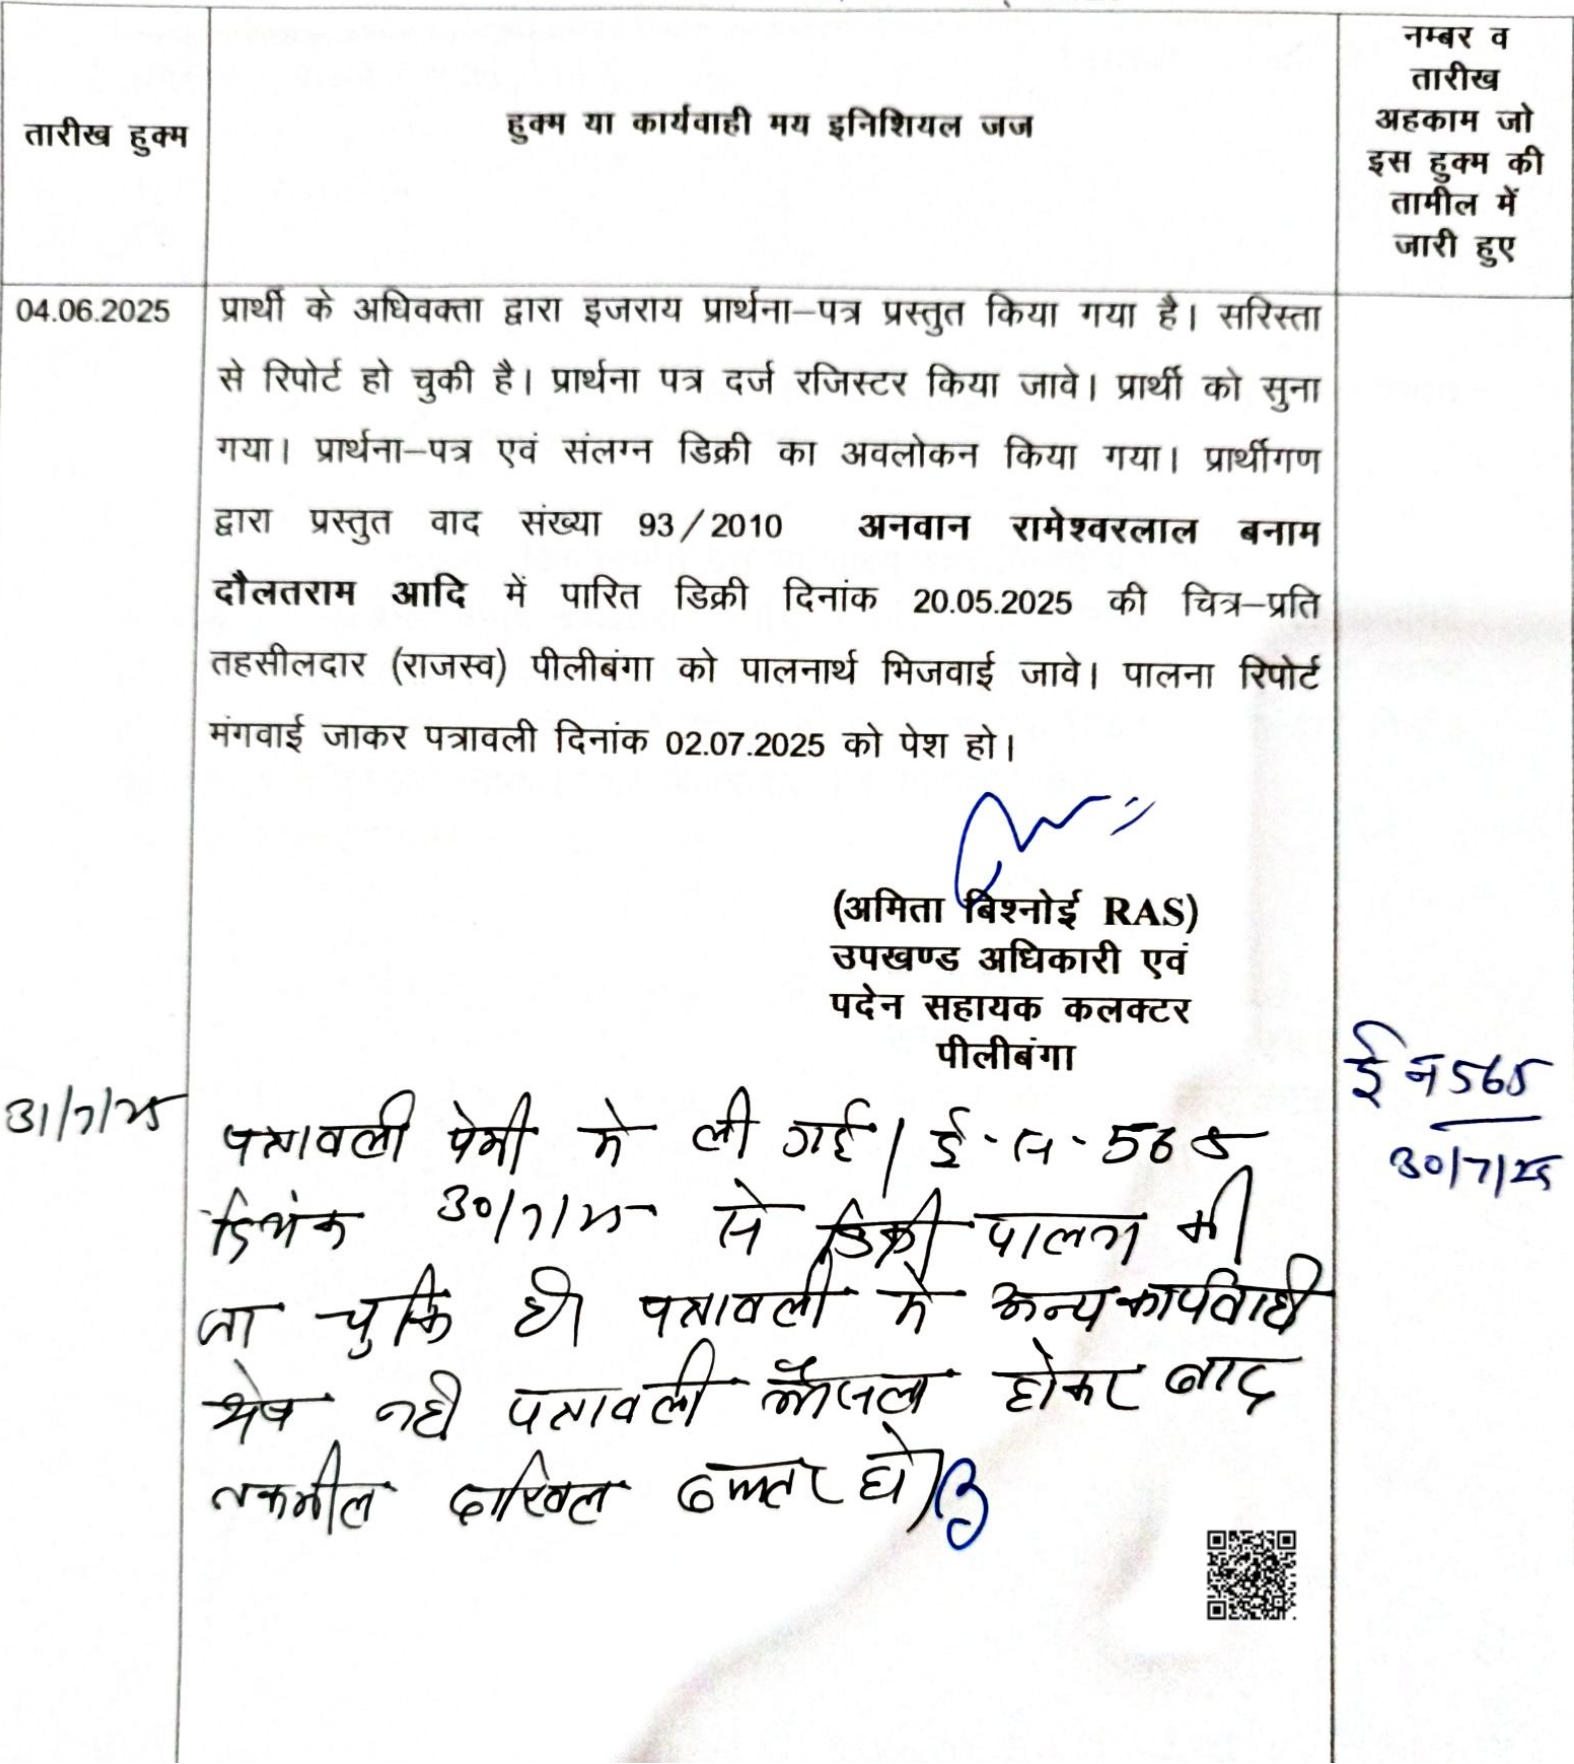 तारीख हुक्म
हुक्म या कार्यवाही मय इनिशियल जज
नम्बर व
तारीख
अहकाम जो
इस हुक्म की
तामील में
जारी हुए
04.06.2025
प्रार्थी के अधिवक्ता द्वारा इजराय प्रार्थना–पत्र प्रस्तुत किया गया है। सरिस्ता
से रिपोर्ट हो चुकी है। प्रार्थना पत्र दर्ज रजिस्टर किया जावे। प्रार्थी को सुना
गया। प्रार्थना–पत्र एवं संलग्न डिक्री का अवलोकन किया गया। प्रार्थीगण
द्वारा प्रस्तुत वाद संख्या 93/2010 अनवान रामेश्वरलाल बनाम
दौलतराम आदि में पारित डिक्री दिनांक 20.05.2025 की चित्र–प्रति
तहसीलदार (राजस्व) पीलीबंगा को पालनार्थ भिजवाई जावे। पालना रिपोर्ट
मंगवाई जाकर पत्रावली दिनांक 02.07.2025 को पेश हो।
(अमिता बिश्नोई RAS)
उपखण्ड अधिकारी एवं
पदेन सहायक कलक्टर
पीलीबंगा
ई न 565
30/7/25
31/7/25
पत्रावली पेशी मे ली गई। ई-न-565
दिनांक 30/7/25 से डिक्री पालना की
जा चुकि है। पत्रावली मे अन्य कार्यवाही
शेष नही पत्रावली फैसला होकर बाद
तकमील दाखिल दफ्तर हो।